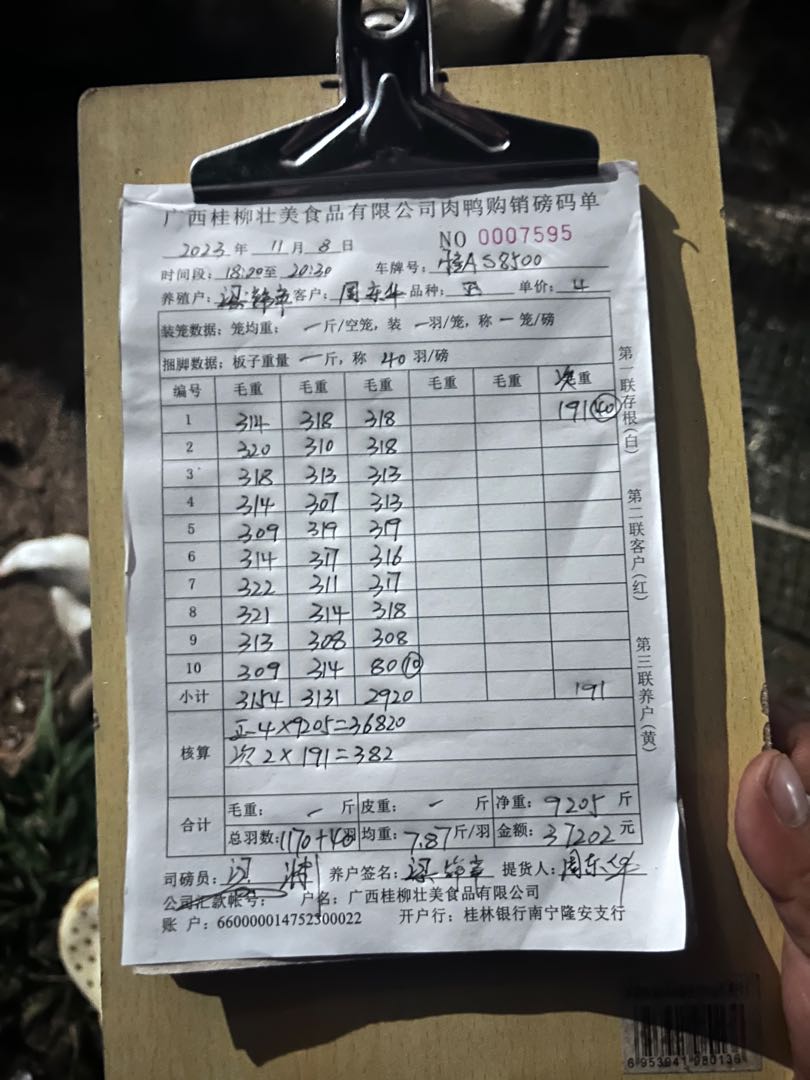 广西桂柳壮美食品有限公司肉鸭购销磅码单
2023 年 11 月 8 日 NO 0007595
时间段: 18:20至 20:30 车牌号: A S8500
养殖户: 客户: 周东华 品种: 单价: 4
装笼数据: 笼均重: 一 斤/空笼, 装 一 羽/笼, 称 一 笼/磅
捆脚数据: 板子重量 一 斤, 称 40 羽/磅
编号 毛重 毛重 毛重 毛重 毛重 次重
1 314 318 318 191 (40)
2 320 310 318
3 318 313 313
4 314 307 313
5 309 319 319
6 314 317 316
7 322 311 317
8 321 314 318
9 313 308 308
10 309 314 80 (10)
小计 3154 3131 2920 191
核算 正 4×9205=36820
次 2×191=382
合计 毛重: 一 斤 皮重: 一 斤 净重: 9205 斤
总羽数: 1170+40 羽 均重: 7.87 斤/羽 金额: 37202 元
司磅员: 养户签名: 提货人: 周东华
公司汇款帐号: 户名: 广西桂柳壮美食品有限公司
账 户: 660000014752300022 开户行: 桂林银行南宁隆安支行
第一联存根(白)
第二联客户(红)
第三联养户(黄)
6 953941 980136